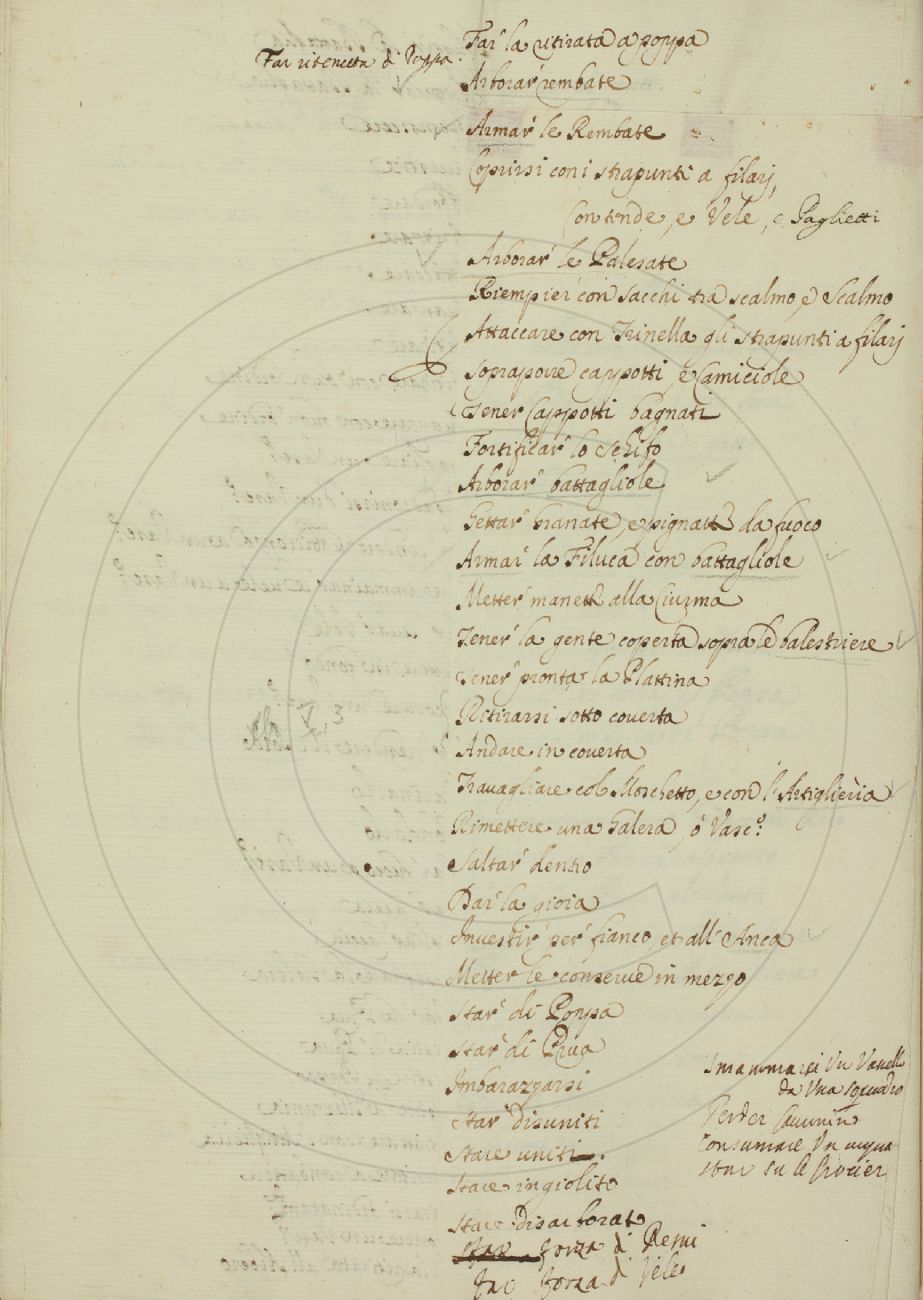 Far la ritirata a poppa
Far ritenuta di Poppa.
Arborar rembate
Armar le Rembate
Coprirsi con i strapunti a filarj,
con tende, e Vele, e Paglietti
Arborar le Palesate
Riempier con sacchi tra scalmo, e Scalmo
Attaccare con Trinella gli strapunti a filarj
soprapore cappotti, e Camiciole
Tener Cappotti bagnati
Fortificar lo schifo
Arborar battagliole
Gettar Granate, e pignatte da fuoco
Armar la Filuca con battagliole
Metter manette alla Ciurma
Tener la gente coperta sopra le balestriere
Tener pronta la Plattina
Ritirarsi sotto coverta
Andare in coverta
Travagliare col Moschetto, e con l'Artiglieria
Rimettere una Galera, o Vasc.º
Saltar dentro
Dar la gioia
Investir per fianco, et all'Anca
Metter le conserve in mezzo
Star di Poppa
Star di Prua
Imbarazzarsi
Star disuniti
Stare uniti.
Stare in giolito
Stare Disarborato
forza di Remi
Far forza di Vele
un Vascello
da una squadra
Perder Cammin
Consumare in acqua